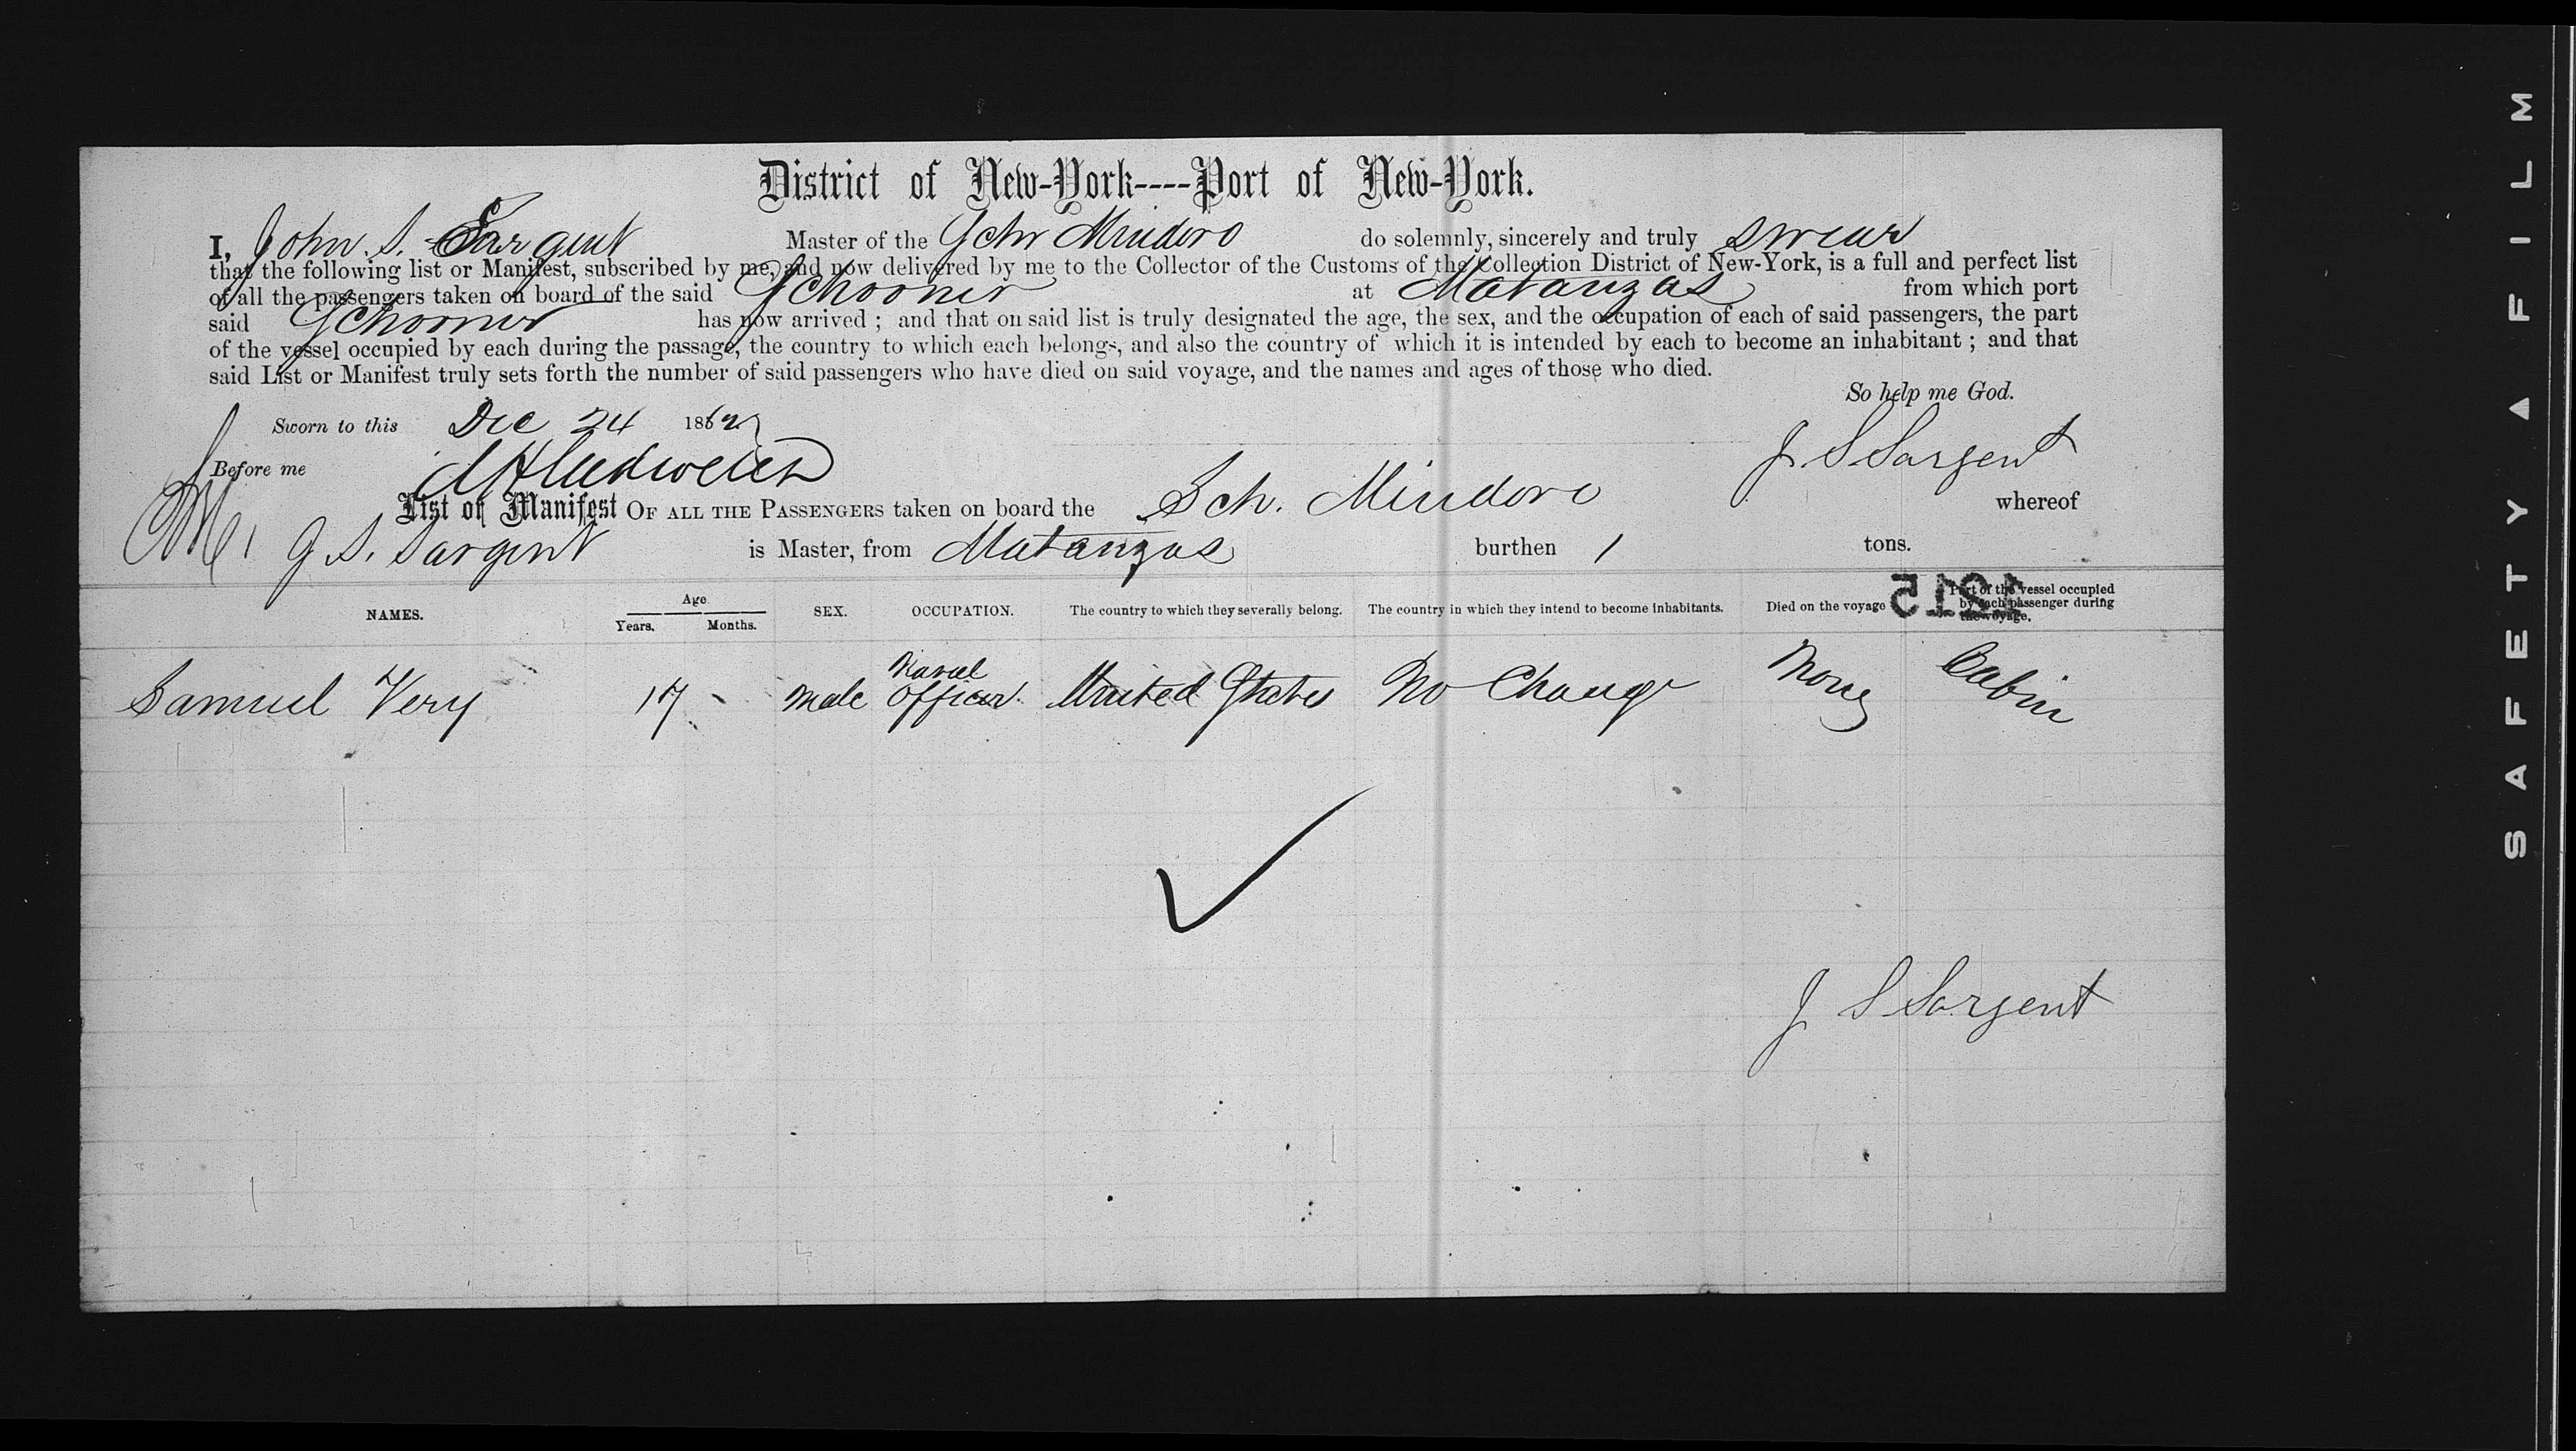 District of New-York----Port of New-York.
I, John S. Sargent Master of the Schr Mindoro do solemnly, sincerely and truly swear
that the following list or Manifest, subscribed by me, and now delivered by me to the Collector of the Customs of the Collection District of New-York, is a full and perfect list
of all the passengers taken on board of the said Schooner at Matanzas from which port
said Schooner has now arrived ; and that on said list is truly designated the age, the sex, and the occupation of each of said passengers, the part
of the vessel occupied by each during the passage, the country to which each belongs, and also the country of which it is intended by each to become an inhabitant ; and that
said List or Manifest truly sets forth the number of said passengers who have died on said voyage, and the names and ages of those who died.
So help me God.
Sworn to this Dec 24 1862
J. S Sargent
Before me
List of Manifest OF ALL THE PASSENGERS taken on board the Sch. Mindoro whereof
J S. Sargent is Master, from Matanzas burthen tons.
NAMES. Age. Years. Months. SEX. OCCUPATION. The country to which they severally belong. The country in which they intend to become inhabitants. Died on the voyage Part of the vessel occupied by each passenger during the voyage.
1215
Samuel Very 17 Male Naval Officer. United States No Change None Cabin
J S Sargent
SAFETY FILM